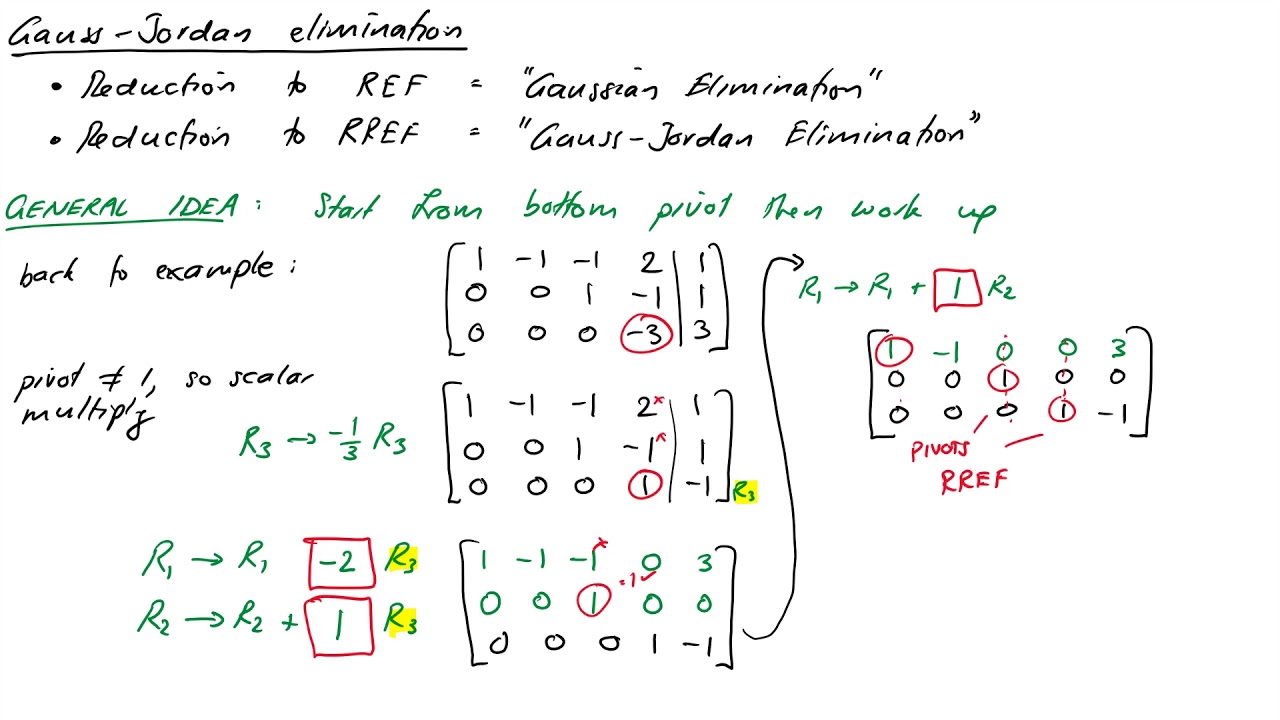 Gauss-Jordan elimination
• Reduction to REF = "Gaussian Elimination"
• Reduction to RREF = "Gauss-Jordan Elimination"
GENERAL IDEA: Start from bottom pivot then work up
back to example:
1 -1 -1 2 | 1
0 0 1 -1 | 1
0 0 0 -3 | 3
pivot ≠ 1, so scalar
multiply
R₃ → -1/3 R₃
1 -1 -1 2ˣ | 1
0 0 1 -1ˣ | 1
0 0 0 1 | -1 R₃
R₁ → R₁ -2 R₃
R₂ → R₂ + 1 R₃
1 -1 -1ˣ 0 3
=1 ✓
0 0 1 0 0
0 0 0 1 -1
R₁ → R₁ + 1 R₂
1 -1 0 0 3
0 0 1 0 0
0 0 0 1 -1
PIVOTS
RREF